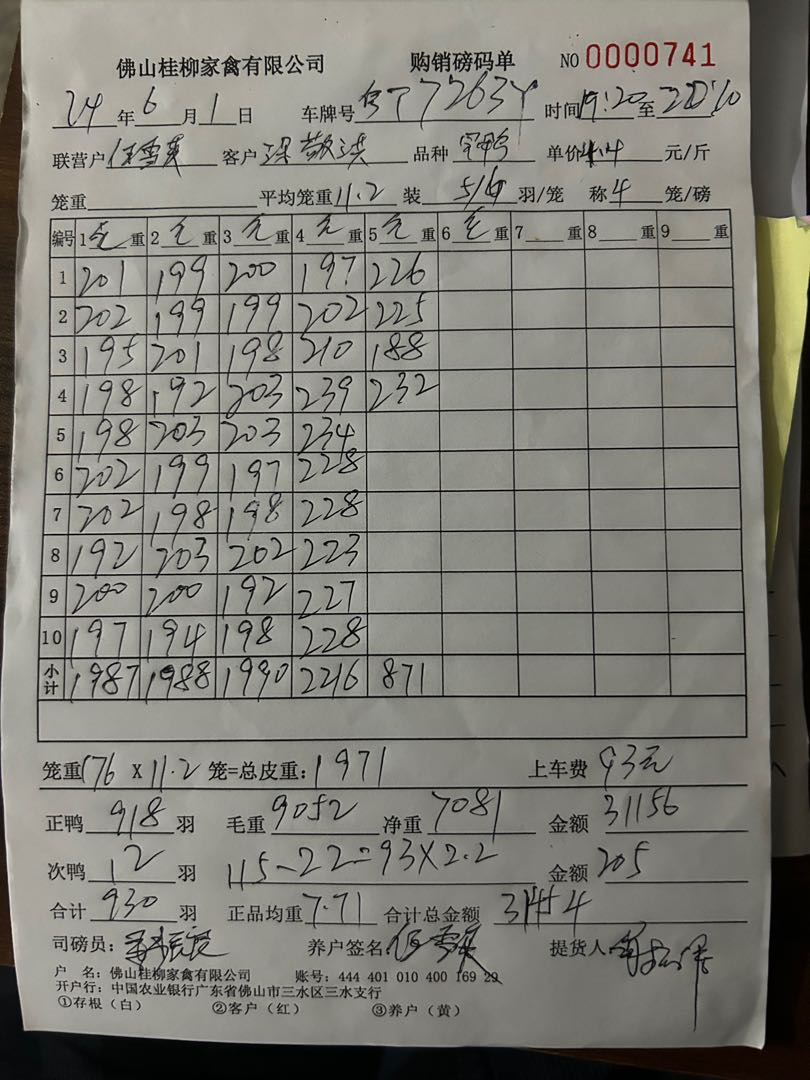 佛山桂柳家禽有限公司 购销磅码单 NO 0000741
24年6月1日 车牌号 72634 时间19:20至
联营户 客户梁敬洪 品种 单价4.4元/斤
笼重 平均笼重11.2 装5/6羽/笼 称4笼/磅
编号 1毛重 2毛重 3毛重 4毛重 5毛重 6毛重 7重 8重 9重
1 201 199 200 197 226
2 202 199 199 202 225
3 195 201 198 210 188
4 198 192 203 239 232
5 198 203 203 234
6 202 199 197 228
7 202 198 198 228
8 192 203 202 223
9 200 200 192 227
10 197 194 198 228
小计 1987 1988 1990 2216 871
笼重176 X 11.2笼=总皮重:1971 上车费93元
正鸭918羽 毛重9052 净重7081 金额31156
次鸭12羽 115-22=93X2.2 金额205
合计930羽 正品均重7.71 合计总金额
司磅员: 养户签名 提货人
户 名:佛山桂柳家禽有限公司 账号:444 401 010 400 169 29
开户行:中国农业银行广东省佛山市三水区三水支行
①存根(白) ②客户(红) ③养户(黄)